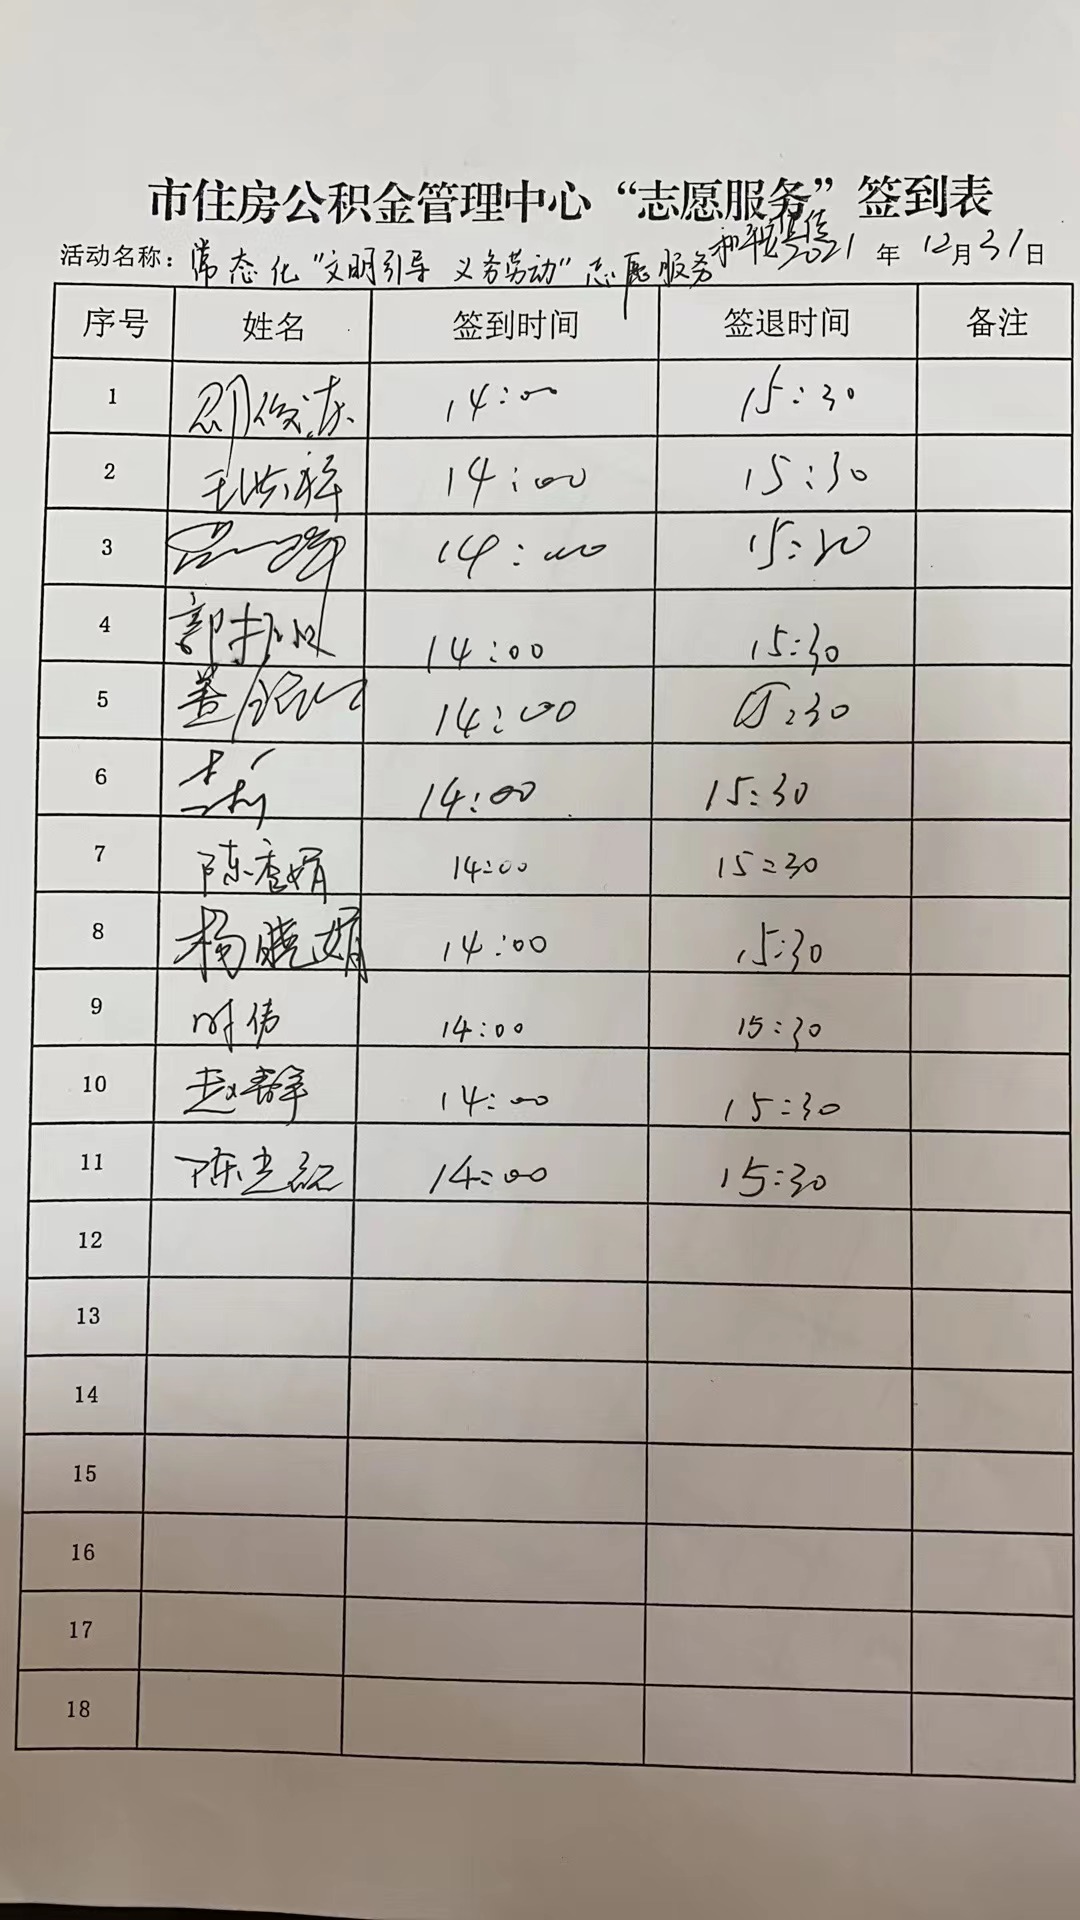 市住房公积金管理中心“志愿服务”签到表
活动名称：常态化“文明引导 义务劳动”志愿服务 2021年12月31日
序号 姓名 签到时间 签退时间 备注
1 14:00 15:30
2 14:00 15:30
3 14:00 15:30
4 郭 14:00 15:30
5 14:00 15:30
6 14:00 15:30
7 陈香娟 14:00 15:30
8 杨晓娟 14:00 15:30
9 时伟 14:00 15:30
10 赵静 14:00 15:30
11 陈 14:00 15:30
12
13
14
15
16
17
18